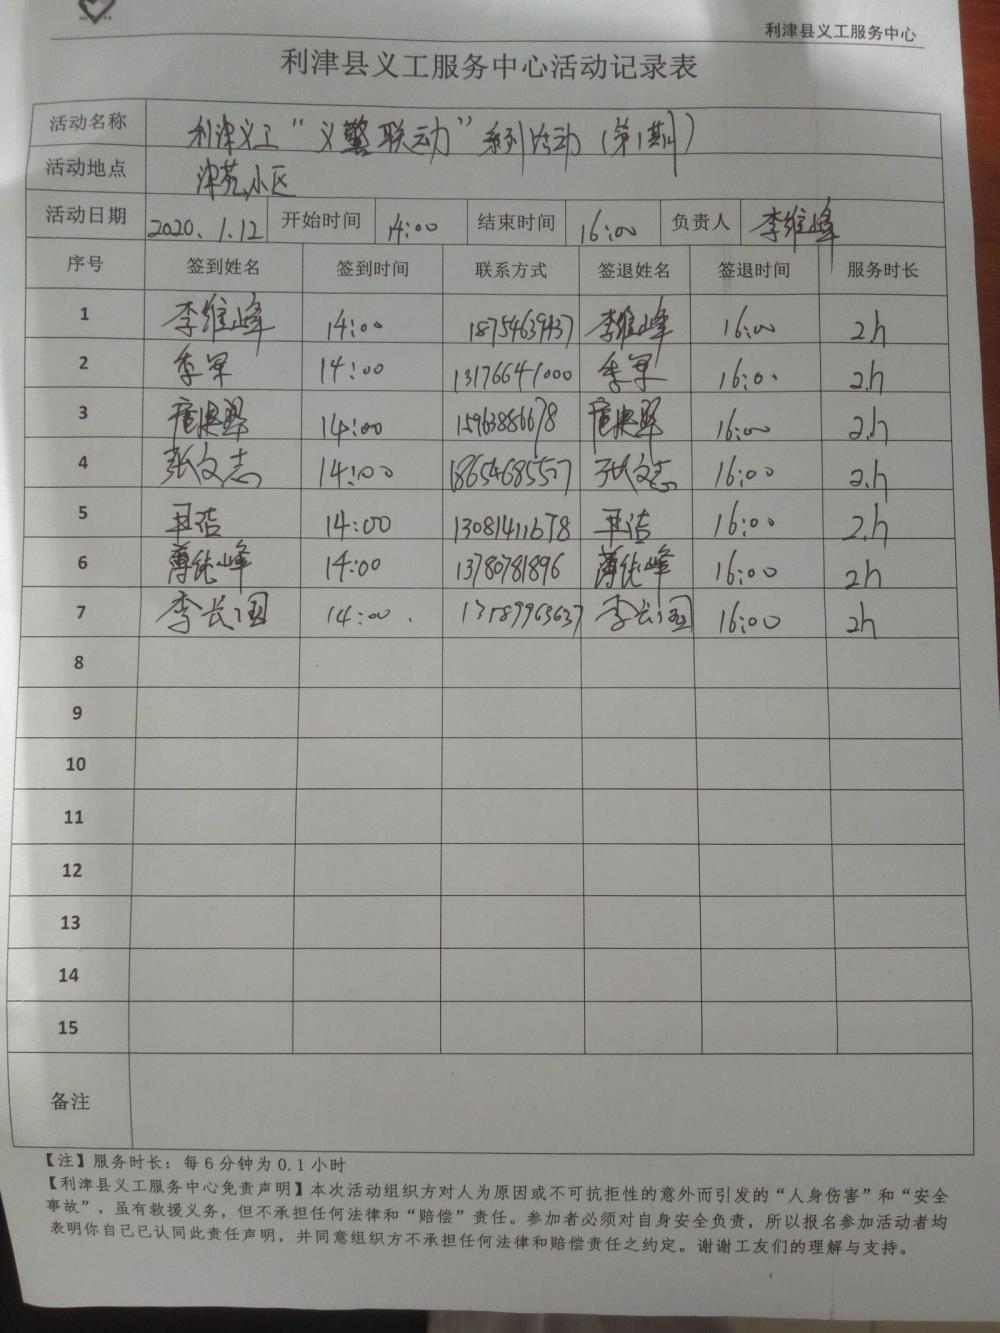 利津县义工服务中心
利津县义工服务中心活动记录表
活动名称 利津义工“义警联动”系列活动（第1期）
活动地点 津苑小区
活动日期 2020.1.12 开始时间 14:00 结束时间 16:00 负责人 李维峰
序号 签到姓名 签到时间 联系方式 签退姓名 签退时间 服务时长
1 李维峰 14:00 18754639437 李维峰 16:00 2.h
2 季军 14:00 13176641000 季军 16:00 2.h
3 14:00 15963886678 16:00 2.h
4 张文志 14:00 18654685507 张文志 16:00 2.h
5 14:00 13081411678 16:00 2.h
6 薄纯峰 14:00 13780781896 薄纯峰 16:00 2h
7 李长国 14:00. 13189963637 李长国 16:00 2h
8
9
10
11
12
13
14
15
备注
【注】服务时长：每6分钟为0.1小时
【利津县义工服务中心免责声明】本次活动组织方对人为原因或不可抗拒性的意外而引发的“人身伤害”和“安全
事故”，虽有救援义务，但不承担任何法律和“赔偿”责任。参加者必须对自身安全负责，所以报名参加活动者均
表明你自己已认同此责任声明，并同意组织方不承担任何法律和赔偿责任之约定。谢谢工友们的理解与支持。